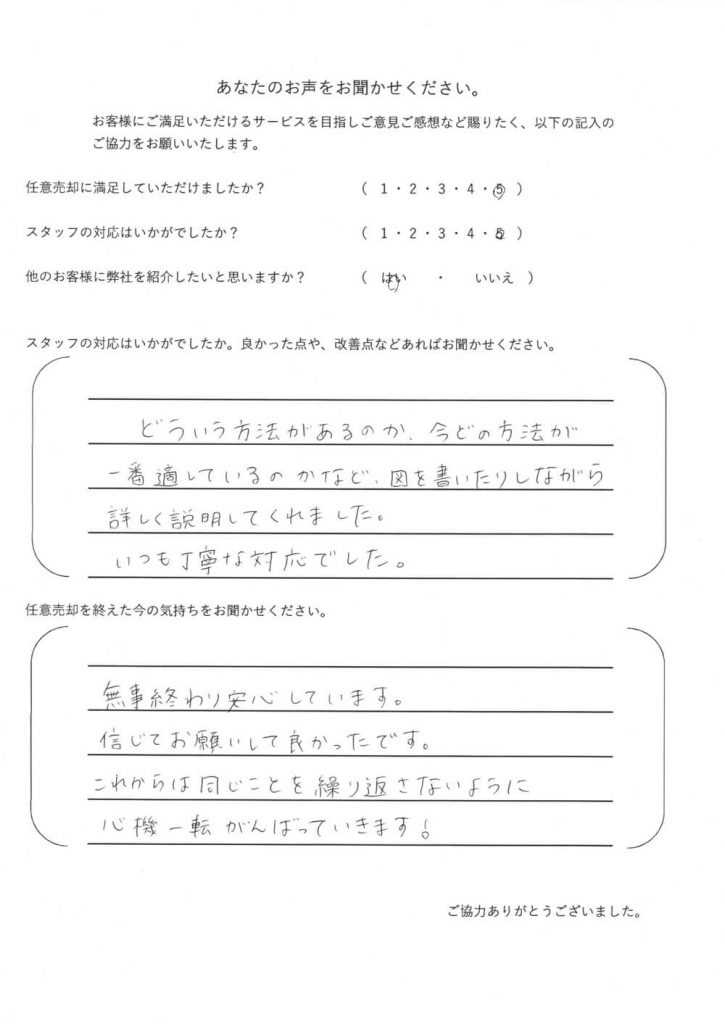 あなたのお声をお聞かせください。
お客様にご満足いただけるサービスを目指しご意見ご感想など賜りたく、以下の記入の
ご協力をお願いいたします。
任意売却に満足していただけましたか？ （ 1・2・3・4・5 ）
スタッフの対応はいかがでしたか？ （ 1・2・3・4・5 ）
他のお客様に弊社を紹介したいと思いますか？ （ はい ・ いいえ ）
スタッフの対応はいかがでしたか。良かった点や、改善点などあればお聞かせください。
どういう方法があるのか、今どの方法が
一番適しているのかなど、図を書いたりしながら
詳しく説明してくれました。
いつも丁寧な対応でした。
任意売却を終えた今の気持ちをお聞かせください。
無事終わり安心しています。
信じてお願いして良かったです。
これからは同じことを繰り返さないように
心機一転がんばっていきます!
ご協力ありがとうございました。